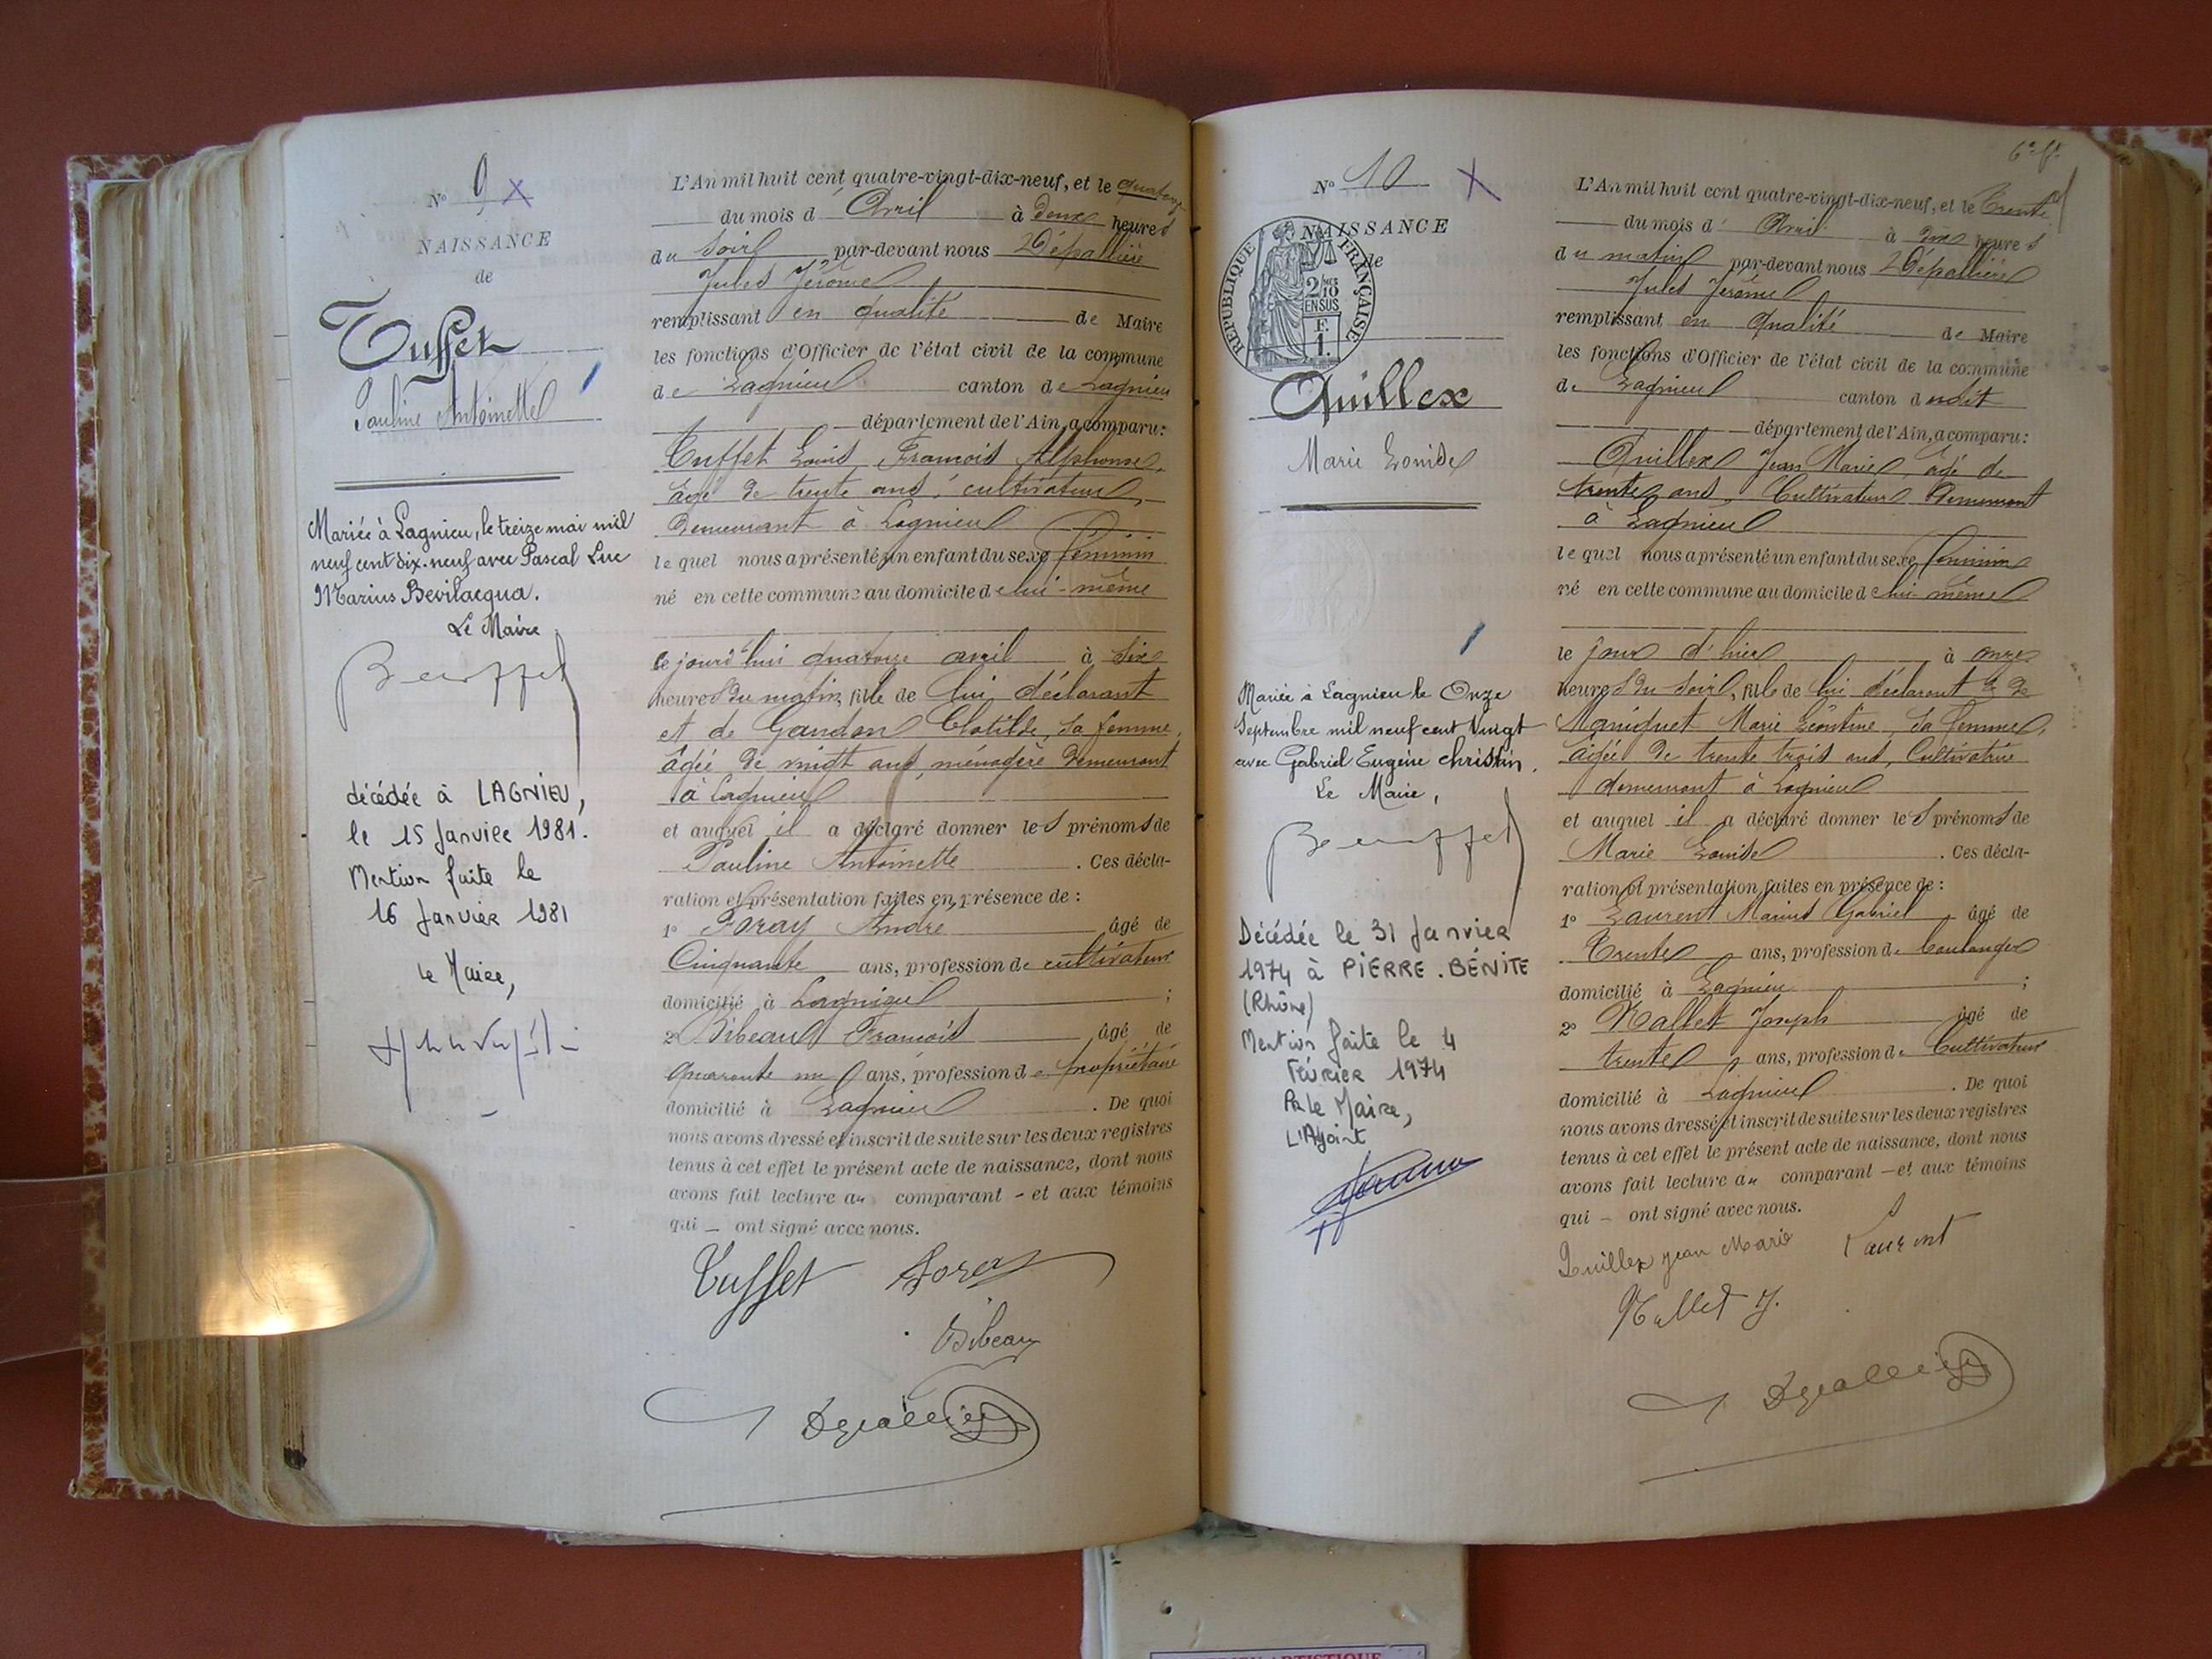 N° 9 X
NAISSANCE
de
Tuffet
Pauline Antoinette
Mariée à Lagnieu, le treize mai mil
neuf cent dix-neuf avec Pascal Luc
Marius Bevilacqua.
Le Maire
décédée à LAGNIEU,
le 15 Janvier 1981.
Mention faite le
16 Janvier 1981
Le Maire,
L'An mil huit cent quatre-vingt-dix-neuf, et le quatorze
du mois d'Avril à deux heures
du soir par-devant nous Dépallière
Jules Jérôme
remplissant en qualité de Maire
les fonctions d'Officier de l'état civil de la commune
de Lagnieu canton de Lagnieu
département de l'Ain, a comparu:
Tuffet Louis François Alphonse,
âgé de trente ans, cultivateur,
demeurant à Lagnieu
lequel nous a présenté un enfant du sexe féminin
né en cette commune au domicile de lui-même
cejourd'hui quatorze avril à six
heures du matin, fille de lui déclarant
et de Gandon Clotilde, sa femme,
âgée de vingt ans, ménagère demeurant
à Lagnieu
et auquel il a déclaré donner les prénoms de
Pauline Antoinette . Ces décla-
ration et présentation faites en présence de :
1° Foray André âgé de
Cinquante ans, profession de cultivateur
domicilié à Lagnieu ;
2° Bibeau François âgé de
quarante un ans, profession de propriétaire
domicilié à Lagnieu . De quoi
nous avons dressé et inscrit de suite sur les deux registres
tenus à cet effet le présent acte de naissance, dont nous
avons fait lecture au comparant - et aux témoins
qui - ont signé avec nous.
Tuffet Foray
Bibeau
N° 10 X
NAISSANCE
de
REPUBLIQUE FRANÇAISE
2/10
EN SUS
F.
1.
Quillex
Marie Louise
Mariée à Lagnieu le Onze
Septembre mil neuf cent vingt
avec Gabriel Eugène Christin.
Le Maire,
Décédée le 31 Janvier
1974 à PIERRE-BÉNITE
(Rhône)
Mention faite le 4
Février 1974
P. le Maire,
L'Adjoint
L'An mil huit cent quatre-vingt-dix-neuf, et le trente
du mois d'Avril à heures
du matin par-devant nous Dépallière
Jules Jérôme
remplissant en qualité de Maire
les fonctions d'Officier de l'état civil de la commune
de Lagnieu canton dudit
département de l'Ain, a comparu:
Quillex Jean Marie, âgé de
trente ans, Cultivateur demeurant
à Lagnieu
lequel nous a présenté un enfant du sexe féminin
né en cette commune au domicile de lui-même
le jour d'hier à onze
heures du soir, fille de lui déclarant & de
Maniquet Marie Léontine, sa femme,
âgée de trente trois ans, Cultivatrice
demeurant à Lagnieu
et auquel il a déclaré donner les prénoms de
Marie Louise . Ces décla-
ration et présentation faites en présence de :
1° Laurent Marius Gabriel âgé de
Trente ans, profession de boulanger
domicilié à Lagnieu ;
2° Nallet Joseph âgé de
trente ans, profession de Cultivateur
domicilié à Lagnieu . De quoi
nous avons dressé et inscrit de suite sur les deux registres
tenus à cet effet le présent acte de naissance, dont nous
avons fait lecture au comparant - et aux témoins
qui - ont signé avec nous.
Quillex jean Marie Laurent
Nallet J.